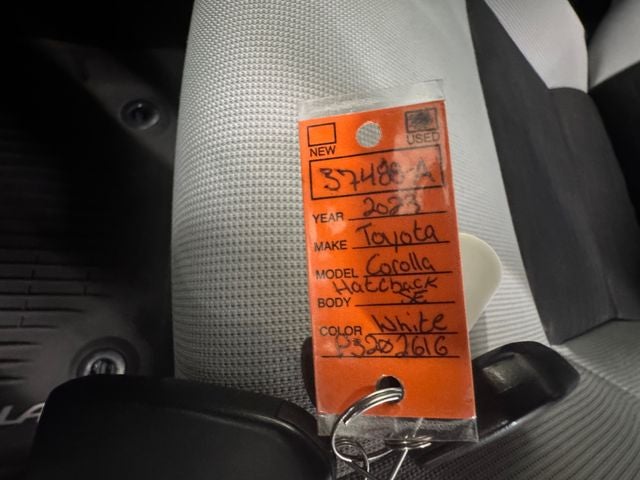 NEW USED
37488-A
YEAR 2023
MAKE Toyota
MODEL Corolla
Hatchback
BODY SE
COLOR White
P3202616
LA